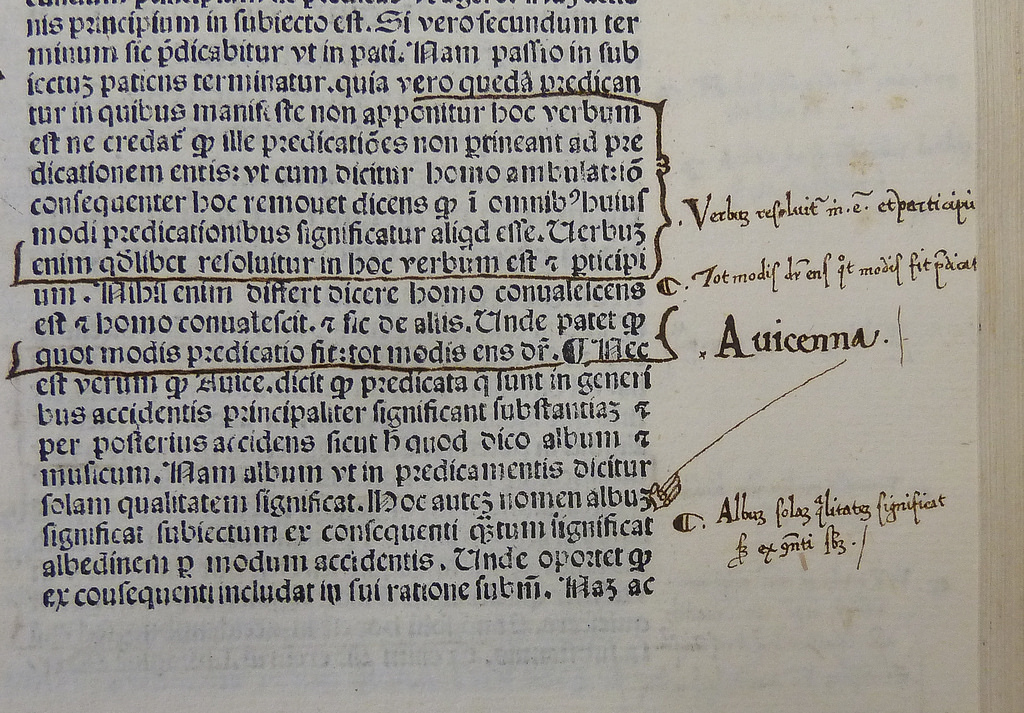 nis principium in subiecto est. Si vero secundum ter
minum sic p̄dicabitur vt in pati. Nam passio in sub
iectuꝫ patiens terminatur. quia vero quedā predican
tur in quibus manifeste non apponitur hoc verbum
est ne credat̄ ꝙ ille predicatiōes non ꝑtineant ad pre
dicationem entis: vt cum dicitur homo ambulat: iō
consequenter hoc remouet dicens ꝙ ī omnibꝰ huius
modi predicationibus significatur aliqd esse. Uerbuꝫ
enim qd̄libet resoluitur in hoc verbum est ⁊ ꝑticipi
um. Nihil enim differt dicere homo conualescens
est ⁊ homo conualescit. ⁊ sic de aliis. Unde patet ꝙ
quot modis predicatio fit: tot modis ens dr̄. ¶ Nec
est verum ꝙ Auice. dicit ꝙ predicata q̄ sunt in generi
bus accidentis principaliter significant substantiaꝫ ⁊
per posterius accidens sicut h̄ quod dico album ⁊
musicum. Nam album vt in predicamentis dicitur
solam qualitatem significat. Hoc auteꝫ nomen albuꝫ
significat subiectum ex consequenti q̄ꝫtum significat
albedinem ꝑ modum accidentis. Unde oportet ꝙ
ex consequenti includat in sui ratione subm̄. Naꝫ ac
Verbuꝫ resoluit᷑ in. ē. et participiū
¶. Tot modis dr̄ ens qͦt modis fit p̄dicat
Auicenna.
¶. Albuꝫ solaꝫ q̄litateꝫ significat
sꝫ ex ꝯñti sbꝫ.